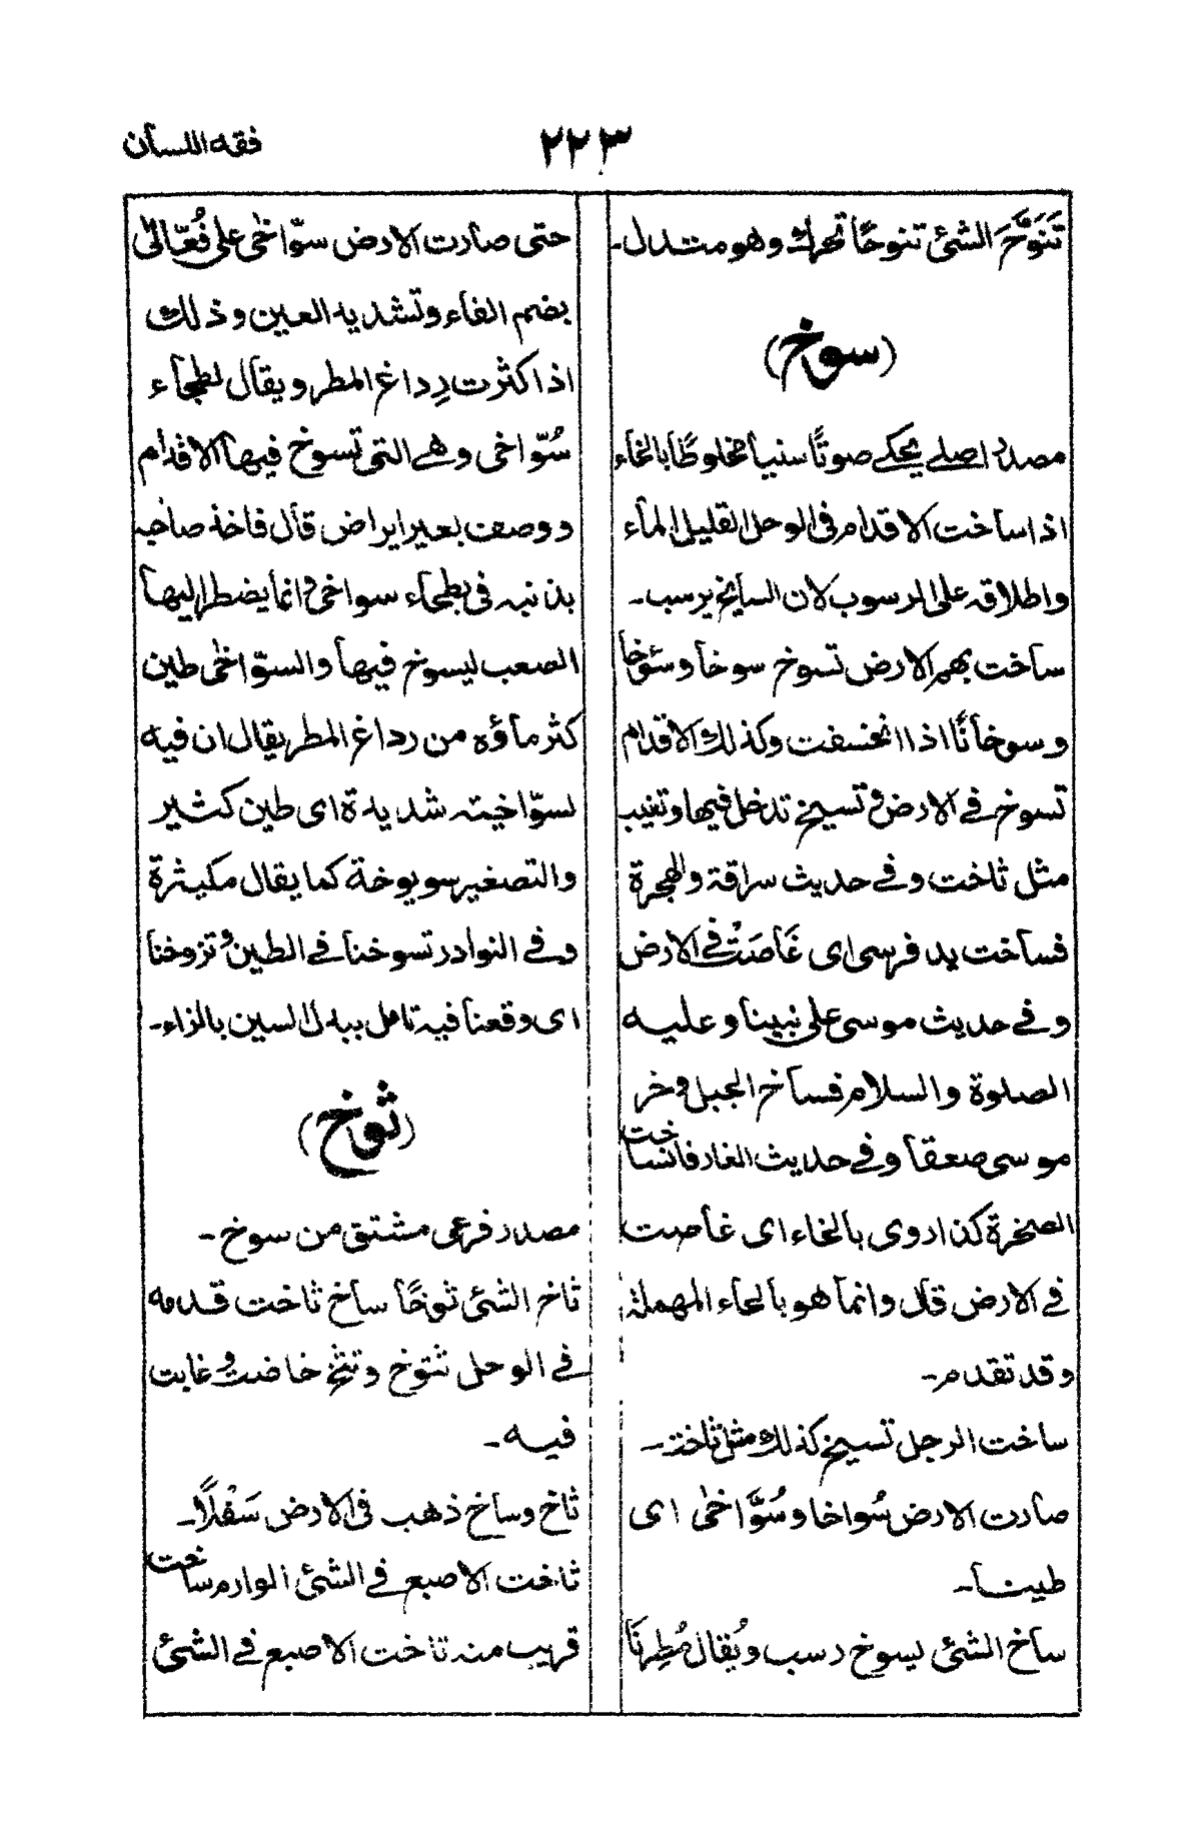 فقه اللسان
٢٢٣
تَنَوَّخَ الشئ تنوخًا تحرك وهو متدل۔
(سوخ)
مصدر اصلي يحكي صوتًا سنيا مخلوطًا بالخاء
اذا ساخت الاقدام في الوحل القليل الماء
واطلاقه على الرسوب لان السايخ يرسب۔
ساخت بهم الارض تسوخ سوخا وسئوخا
وسوخانًا اذا انخسفت وكذلك الاقدام
تسوخ في الارض و تسيخ تدخل فيها وتغيب
مثل ثاخت وفي حديث سراقة والهجرة
فساخت يد فرسى اى غَاصَتْ في الارض
وفي حديث موسى على نبينا وعليه
الصلوة والسلام فساخ الجبل و خر
موسى صعقا وفي حديث الغار فانساخت
الصخرة كذا روى بالخاء اى غاصت
في الارض قال وانما هو بالحاء المهملة
وقد تقدم۔
ساخت الرجل تسيخ كذلك مثل ثاخت۔
صارت الارض سُواخا وسُوَّاخى اى
طينا۔
ساخ الشئ يسوخ رسب ويُقال مُطِرنَا
حتى صارت الارض سوّاخى على فُعّالىٰ
بضم الفاء وتشديد العين وذلك
اذا كثرت رِداغ المطر ويقال بطحاء
سُوّاخى وهي التى تسوخ فيها الاقدام
ووصف بعيرا يراض قال فاخذ صاحبه
بذنبه فى بطحاء سواخى و انما يضطر اليها
الصعب ليسوخ فيها والسوّاخى طين
كثر ماؤه من رداغ المطر يقال ان فيه
لسوّاخية شديدة اى طين كثير
والتصغير سويوخة كما يقال مكيثرة
وفي النوادر تسوخنا في الطين و تزوخنا
اى وقعنا فيه تامل ببدل السين بالزاء۔
(ثوخ)
مصدر فرعى مشتق من سوخ۔
ثاخ الشئ ثوخًا ساخ ثاخت قدمه
في الوحل تثوخ وتثخ خاضت و غابت
فيه۔
ثاخ وساخ ذهب فى الارض سَفْلًا۔
ثاخت الاصبع في الشئ الوارم ساخت
قريب منه ثاخت الاصبع في الشئ